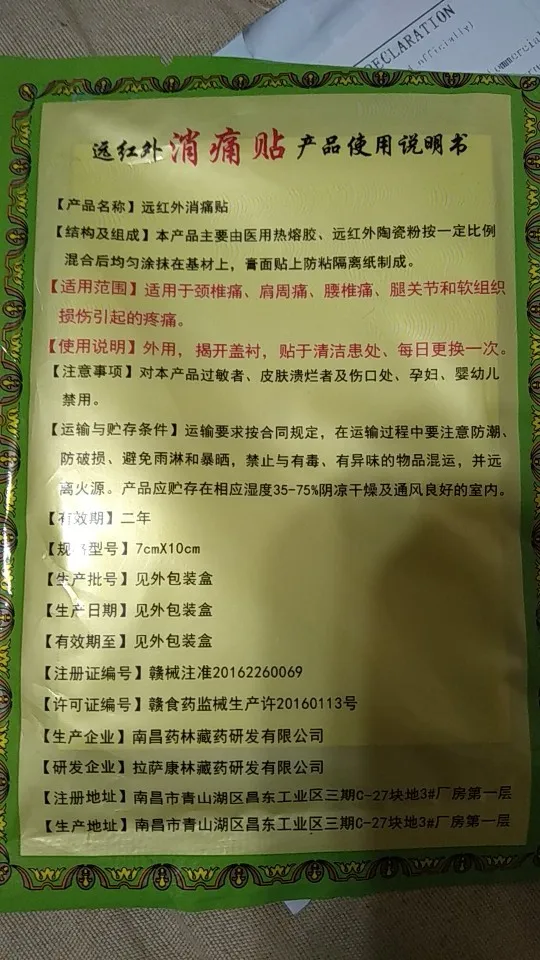 DECLARATION
officially)
远红外消痛贴产品使用说明书
【产品名称】远红外消痛贴
【结构及组成】本产品主要由医用热熔胶、远红外陶瓷粉按一定比例
混合后均匀涂抹在基材上，膏面贴上防粘隔离纸制成。
【适用范围】适用于颈椎痛、肩周痛、腰椎痛、腿关节和软组织
损伤引起的疼痛。
【使用说明】外用，揭开盖衬，贴于清洁患处、每日更换一次。
【注意事项】对本产品过敏者、皮肤溃烂者及伤口处、孕妇、婴幼儿
禁用。
【运输与贮存条件】运输要求按合同规定，在运输过程中要注意防潮、
防破损、避免雨淋和暴晒，禁止与有毒、有异味的物品混运，并远
离火源。产品应贮存在相应湿度35-75%阴凉干燥及通风良好的室内。
【有效期】二年
【规格型号】7cmX10cm
【生产批号】见外包装盒
【生产日期】见外包装盒
【有效期至】见外包装盒
【注册证编号】赣械注准20162260069
【许可证编号】赣食药监械生产许20160113号
【生产企业】南昌药林藏药研发有限公司
【研发企业】拉萨康林藏药研发有限公司
【注册地址】南昌市青山湖区昌东工业区三期C-27块地3#厂房第一层
【生产地址】南昌市青山湖区昌东工业区三期C-27块地3#厂房第一层